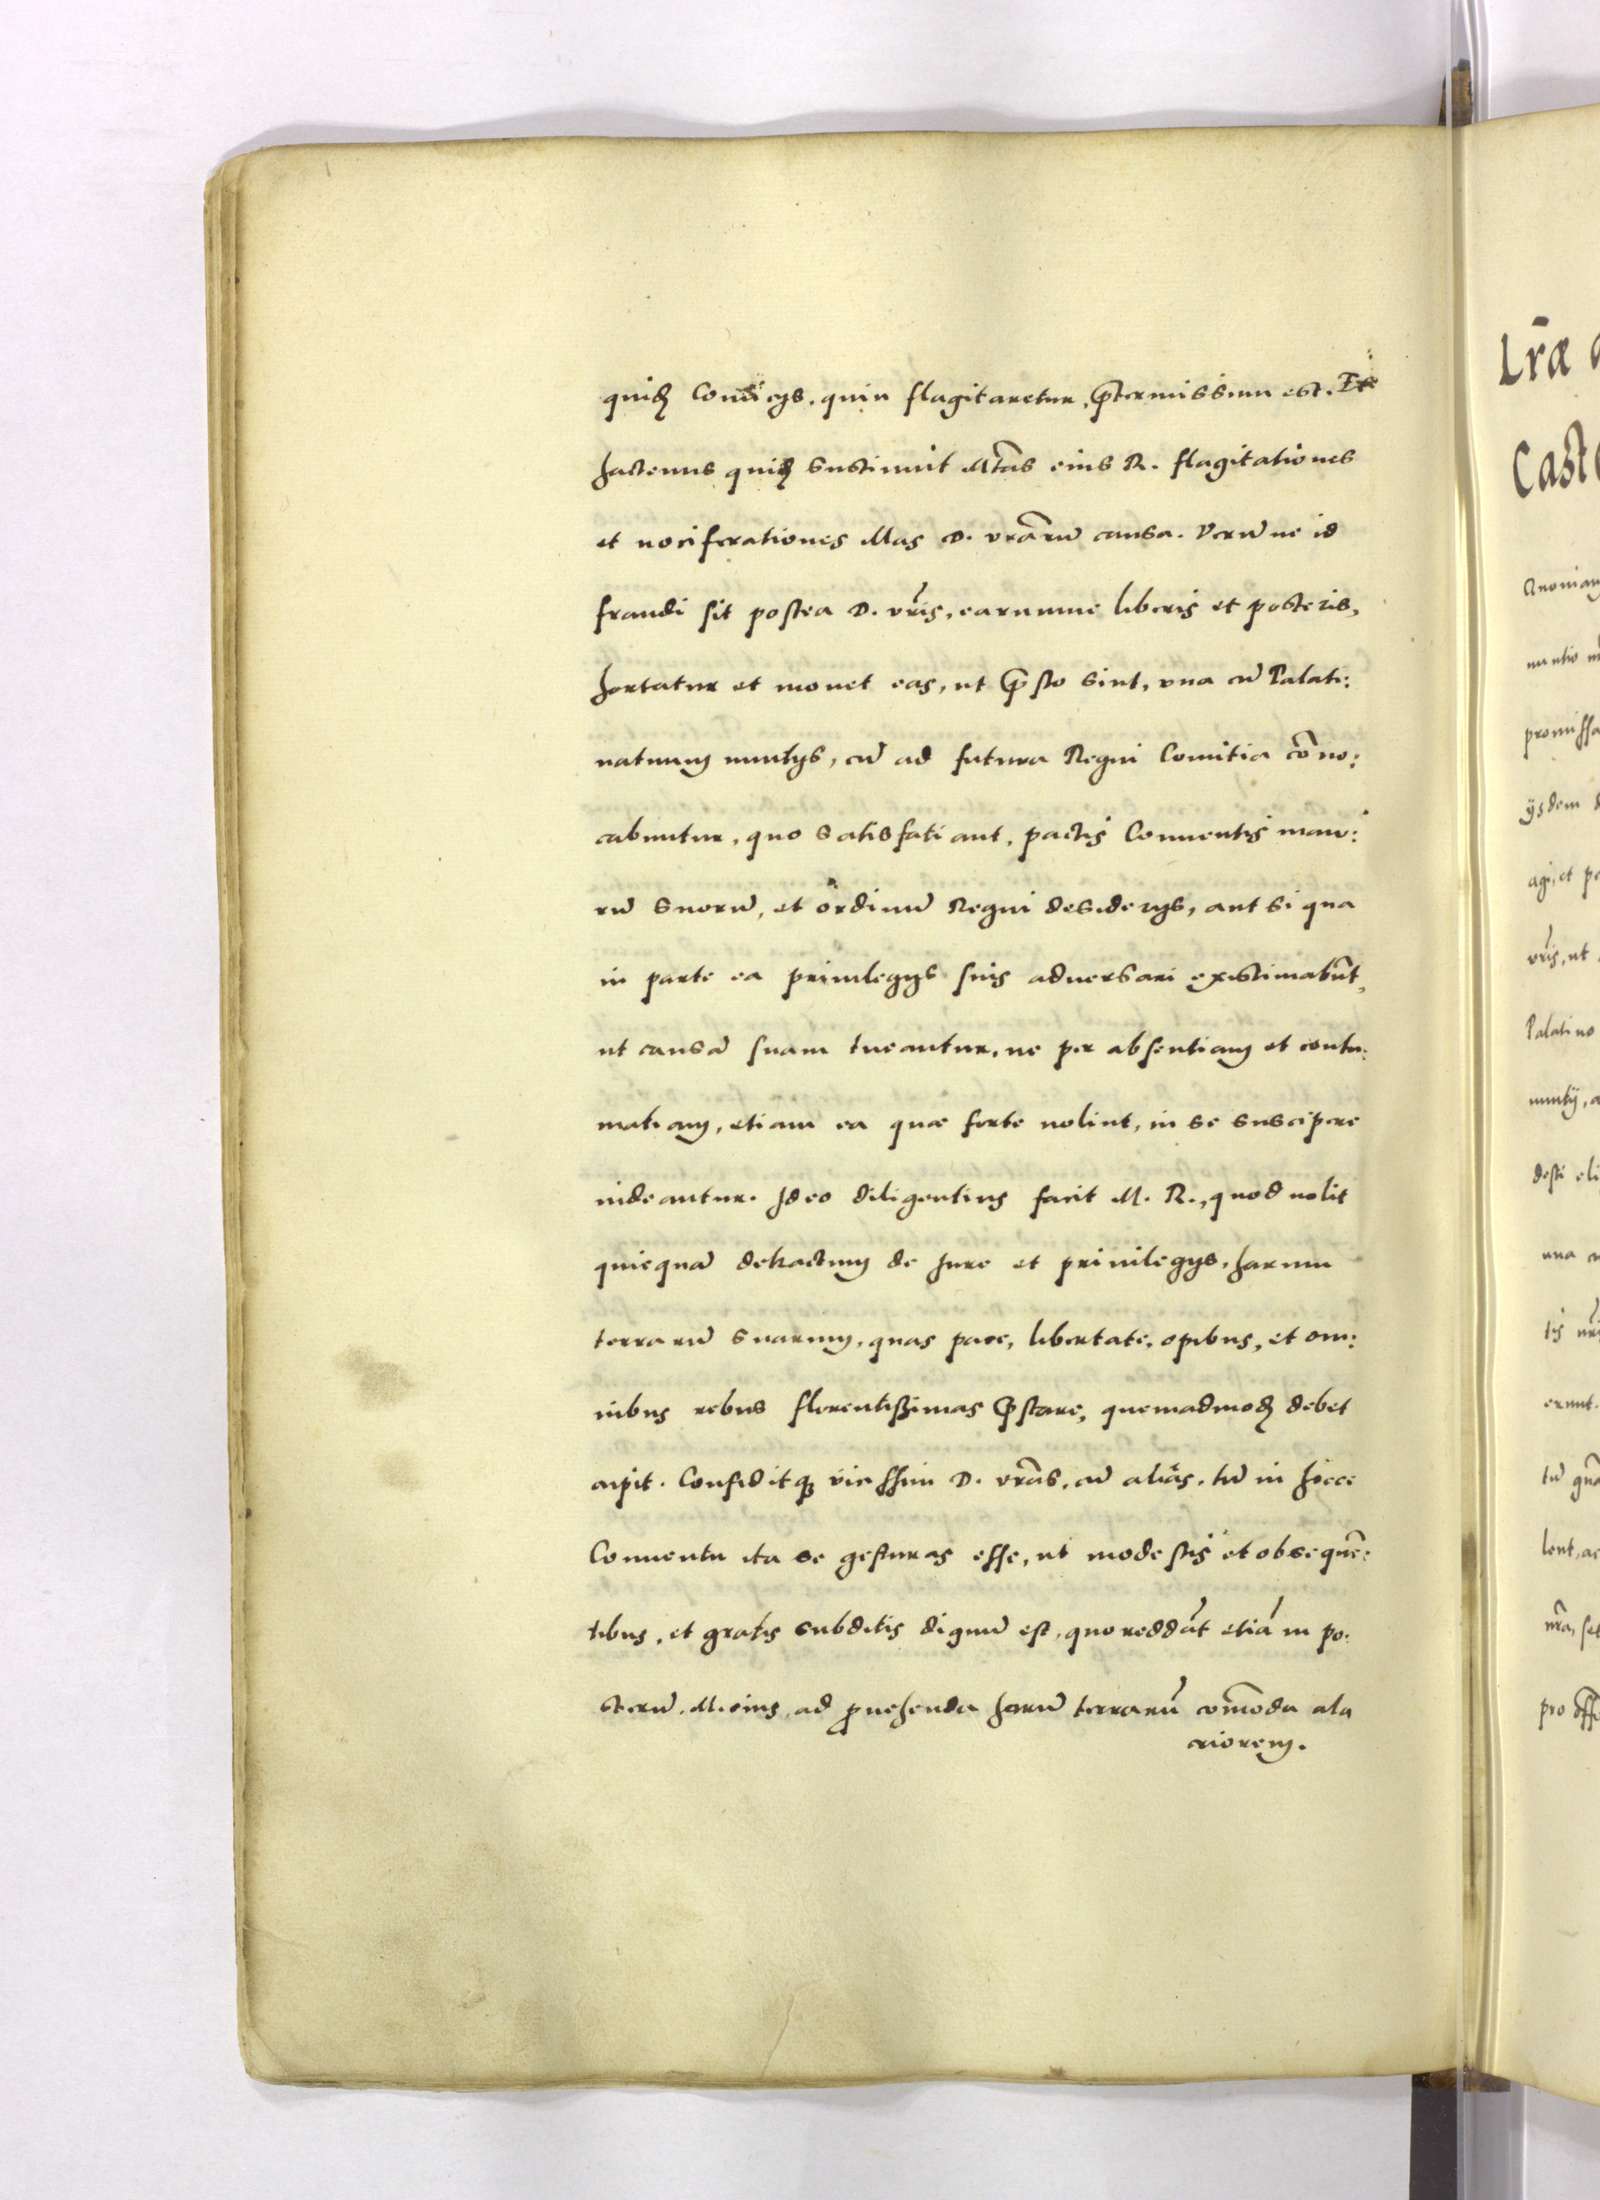 quidꝫ Conuicijs, quin flagitaretur, p̄termissum est. Et
hactenus quidꝫ sustinuit Mtās eius R. flagitationes
et uociferationes illas D. vrārū causa. Verū ne id
fraudi sit postea D. vrīs, earumue liberis et posteris,
hortatur et monet eas, ut p̄sto sint, vna cū Palati:
natuum nuntijs, cū ad futura Regni Comitia cōuo:
cabuntur, quo satisfatiant, pactis Conuentis maio:
rū suorū, et ordinū Regni desiderijs, aut si qua
in parte ea priuilegijs suis aduersari existimabūt,
ut causā suam tueantur, ne per absentiam et contu:
matiam, etiam ea quæ forte nolint, in se suscipere
uideantur. Ideo diligentius facit M. R., quod nolit
quicquā detractum de Jure et priuilegijs, harum
terrarū suarum, quas pace, libertate, opibus, et om:
nibus rebus florentissimas p̄stare, quemadmodꝫ debet
cupit. Confiditqꝫ vicissim D. vrās, cū aliās, tū in hocce
Conuentu ita se gesturas esse, ut modestis et obsequē:
tibus, et gratis subditis dignū est, quo reddāt etiā in po:
sterū, M. eius, ad ꝓuehenda harū terrarū com̄oda ala
criorem.
Lrāe
Cast
nuntio
promissa
ijsdem
agi, et
vrīs, ut
Palatino
nuntij,
una
erunt.
tū
lent, ac
pro